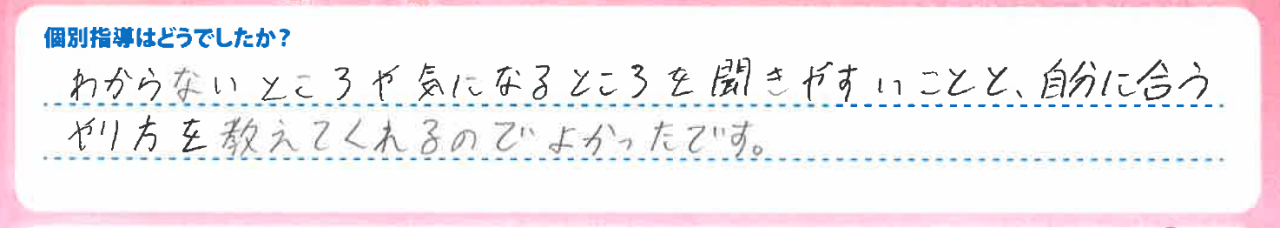 個別指導はどうでしたか？
わからないところや気になるところを聞きやすいことと、自分に合う
やり方を教えてくれるのでよかったです。